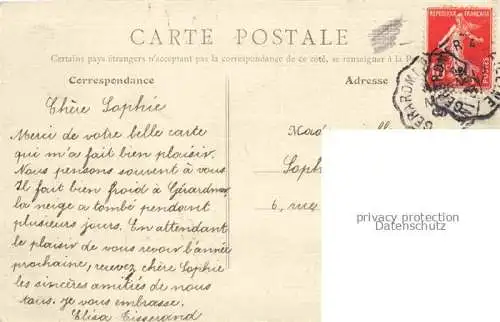 CARTE POSTALE
Certains pays étrangers n'acceptant pas la correspondance de ce côté, se renseigner à la P
Correspondance
Adresse
REPUBLIQUE FRANÇAISE
POSTES
Chère Sophie
Merci de votre belle carte
qui m'a fait bien plaisir.
Nous pensons souvent à vous
Il fait bien froid à Gérardmer
la neige a tombé pendant
plusieurs jours. En attendant
le plaisir de vous revoir l'année
prochaine, recevez chère Sophie
les sincères amitiés de nous
tous. je vous embrasse.
Elisa Tisserand
Soph
6, rue
privacy protection
Datenschutz